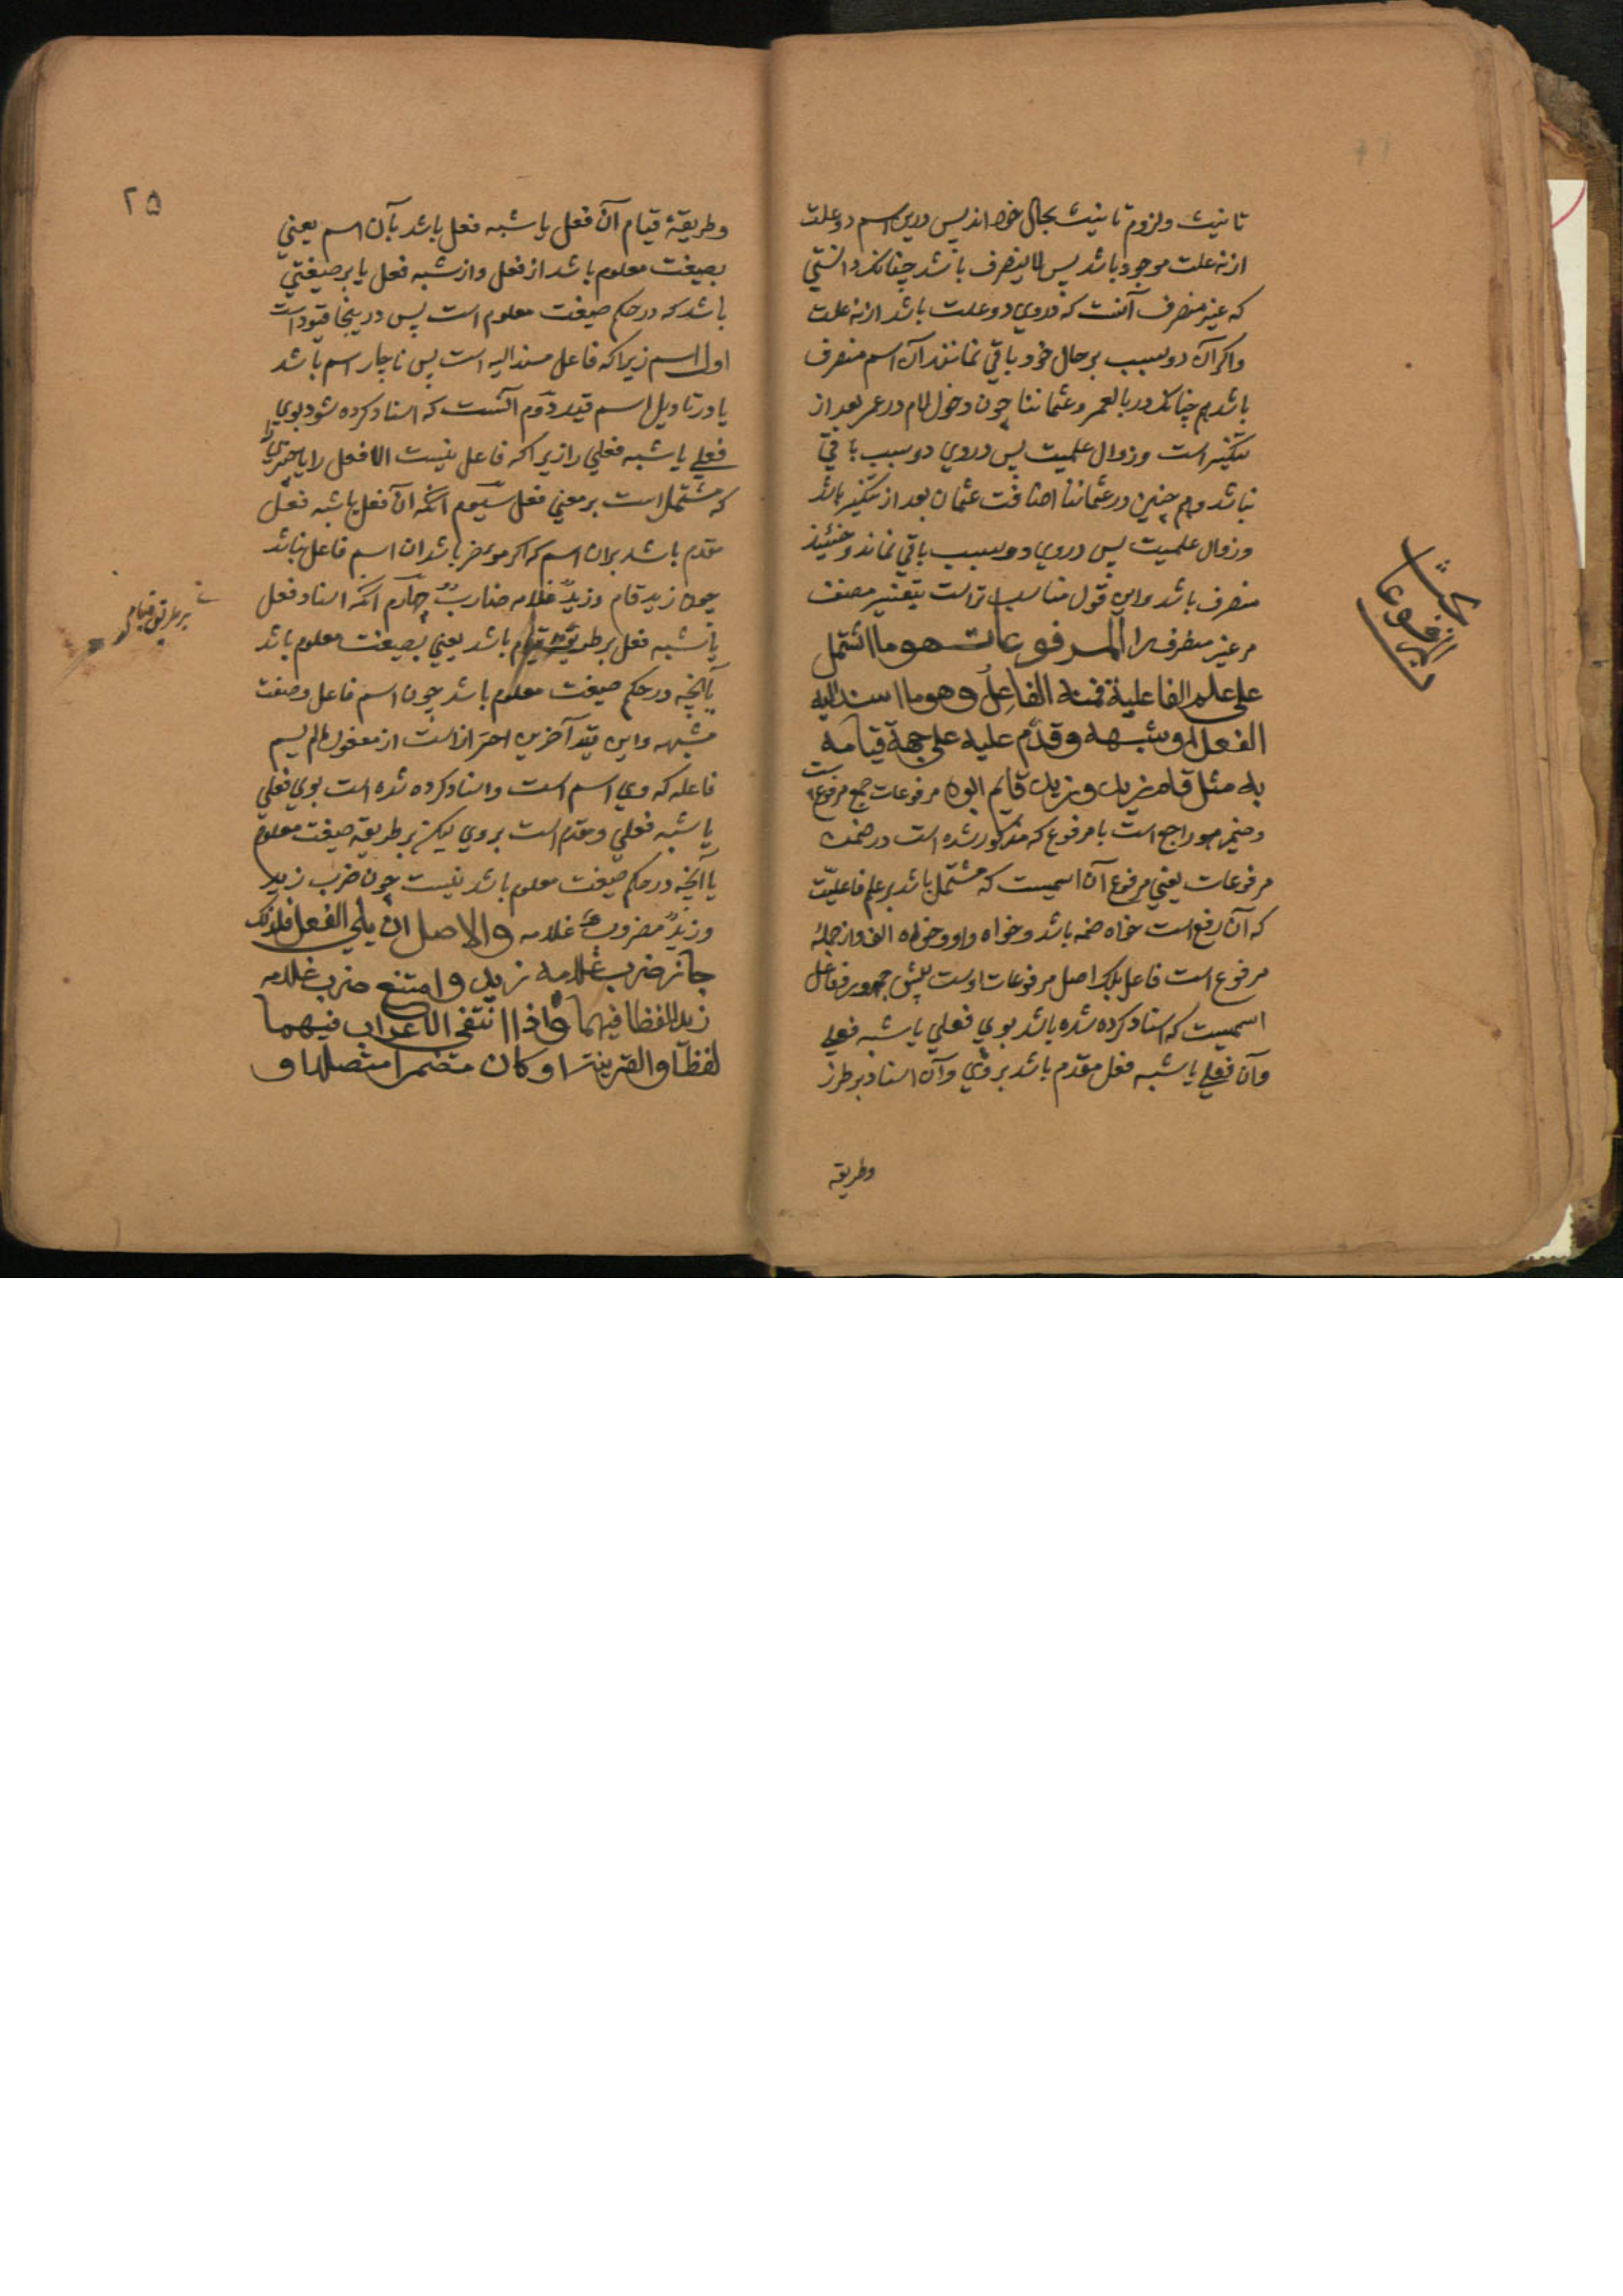 تانیث و لزوم تانیث بحال خود اند پس درین اسم دو علت
از نه علت موجود باشد پس لا ینصرف باشد چنانکه دانستی
که غیر منصرف آنست که در وی دو علت باشد از نه علت
واکر آن دو سبب بر حال خود باقی نمانند آن اسم منصرف
باشد هم چنانکه در بالعمر و عثماننا چون دخول لام در عمر بعد از
تنکیر است و زوال علمیت پس در وی دو سبب باقی
نباشد و هم چنین در عثماننا اضافت عثمان بعد از تنکیر باشد
و زوال علمیت پس در وی دو سبب باقی نماند و حینئذ
منصرف باشد و این قول مناسب تر است بتفسیر مصنف
مر غیر منصرف را المرفوعات هو ما اشتمل
علی علم الفاعلیة فمنه الفاعل وهو ما اسند الیه
الفعل او شبهه وقدم علیه علی جهة قیامه
به مثل قام زید وزید قایم ابوه مرفوعات جمع مرفوع است
و ضمیر هو راجع است با مرفوع که مذکور شده است در ضمن
مرفوعات یعنی مرفوع آن اسمیست که مشتمل باشد بر علم فاعلیت
که آن رفع است خواه ضمه باشد و خواه واو و خواه الف و از جمله
مرفوع است فاعل بلکه اصل مرفوعات اوست پیش جمهور فاعل
اسمیست که اسناد کرده شده باشد بوی فعلی یا شبه فعلی
و آن فعلی یا شبه فعل مقدم باشد بر وی و آن اسناد بر طرز
وطریقه
بحث
المرفوعات
۲۵
وطریقهٔ قیام آن فعل یا شبه فعل باشد بآن اسم یعنی
بصیغت معلوم باشد از فعل و از شبه فعل یا بر صیغتی
باشد که در حکم صیغت معلوم است پس درینجا قیود است
اول اسم زیرا که فاعل مسند الیه است پس ناچار اسم باشد
یا در تاویل اسم قید دوم آنست که اسناد کرده شود بوی
فعلی یا شبه فعلی را زیرا که فاعل نیست الا فعل را یا چیزی را
که مشتمل است بر معنی فعل سیوم انکه آن فعل یا شبه فعل
مقدم باشد بر ان اسم که اکر موخر باشد ان اسم فاعل نباشد
چون زید قام و زید غلامه ضارب چهارم انکه اسناد فعل
یا شبه فعل بر طریقه قیام باشد یعنی بصیغت معلوم باشد
یا آنچه در حکم صیغت معلوم باشد چون اسم فاعل و صفت
مشبهه و این قید آخرین احتراز است از مفعول ما لم یسم
فاعله که وی اسم است و اسناد کرده شده است بوی فعلی
یا شبه فعلی و مقدم است بروی لیکن بر طریقه صیغت معلوم
یا آنچه در حکم صیغت معلوم باشد نیست چون ضرب زید
و زید مضروب غلامه والاصل ان یلی الفعل فلذلک
جاز ضرب غلامه زید وامتنع ضرب غلامه
زیدا لفظا فیهما واذا انتفی الاعراب فیهما
لفظا والقرینة او کان مضمرا متصلا او
بر طریق قیام